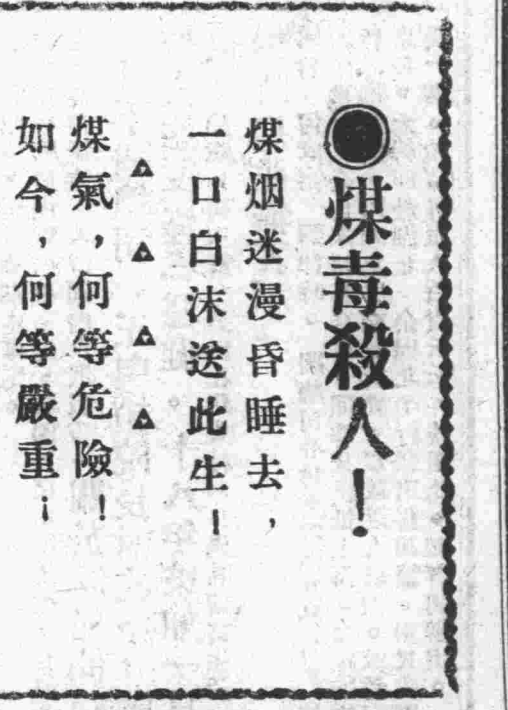 ●煤毒殺人！
煤烟迷漫昏睡去，
一口白沫送此生！
△△△△
煤氣，何等危險！
如今，何等嚴重¡